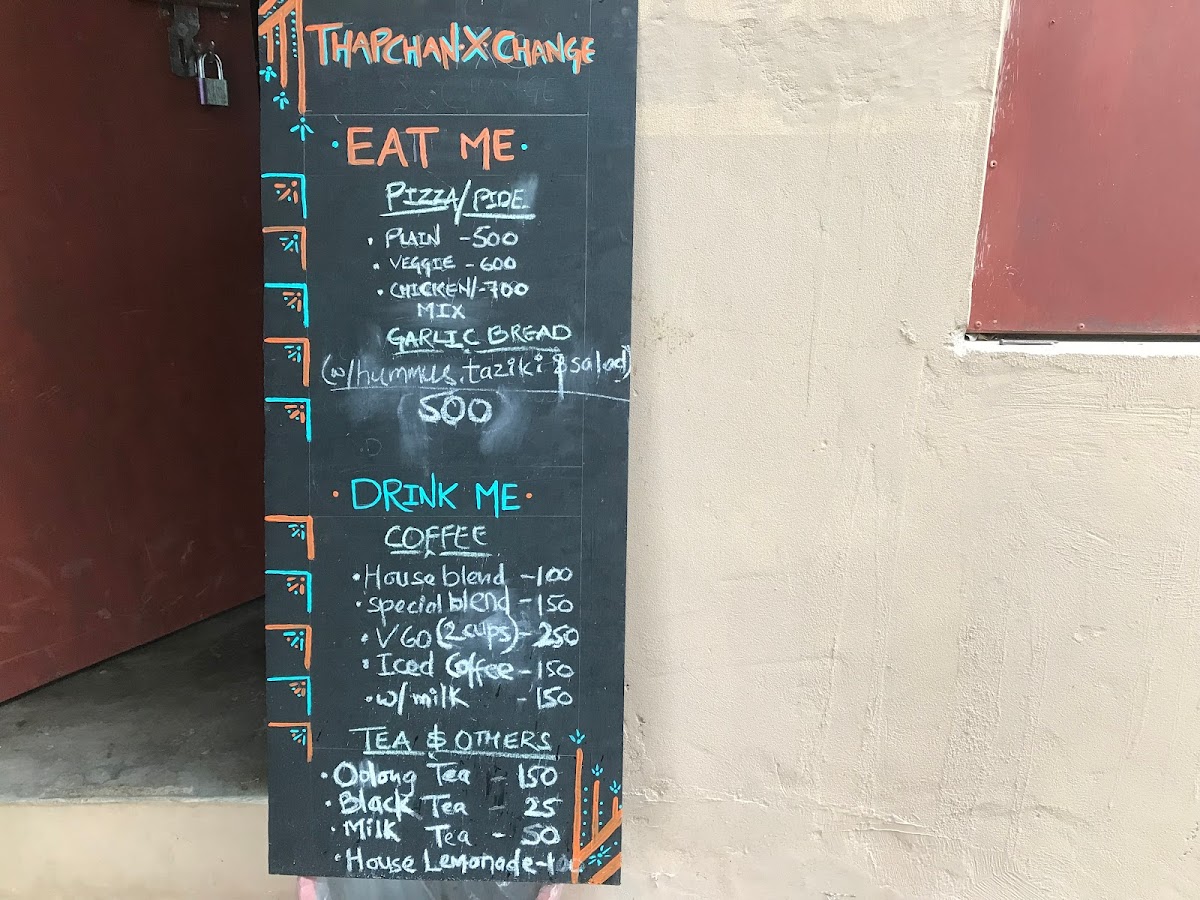 THAPCHAN X CHANGE
EAT ME
PIZZA/PIDE
PLAIN - 500
VEGGIE - 600
CHICKEN/ - 700
MIX
GARLIC BREAD
(w/hummus, taziki & salad)
500
DRINK ME
COFFEE
House blend - 100
special blend - 150
V60 (2 cups) - 250
Iced Coffee - 150
w/milk - 150
TEA & OTHERS
Oolong Tea - 150
Black Tea - 25
Milk Tea - 50
House Lemonade - 100